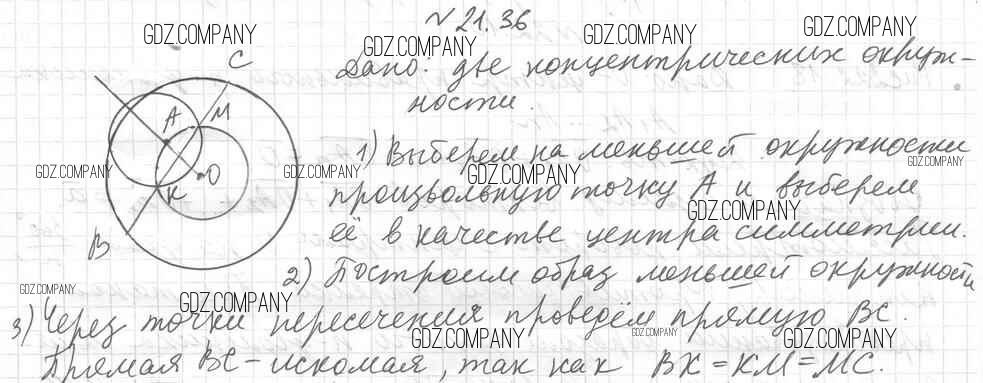 № 21.36
GDZ.COMPANY GDZ.COMPANY GDZ.COMPANY GDZ.COMPANY
Дано: две концентрических окруж-
ности.
C
M
A
O
K
B
1) Выберем на меньшей окружности
GDZ.COMPANY GDZ.COMPANY GDZ.COMPANY GDZ.COMPANY
произвольную точку A и выберем
GDZ.COMPANY
её в качестве центра симметрии.
2) Построим образ меньшей окружности
GDZ.COMPANY GDZ.COMPANY
3) Через точки пересечения проведём прямую BC.
GDZ.COMPANY GDZ.COMPANY GDZ.COMPANY
Прямая BC – искомая, так как BK = KM = MC.